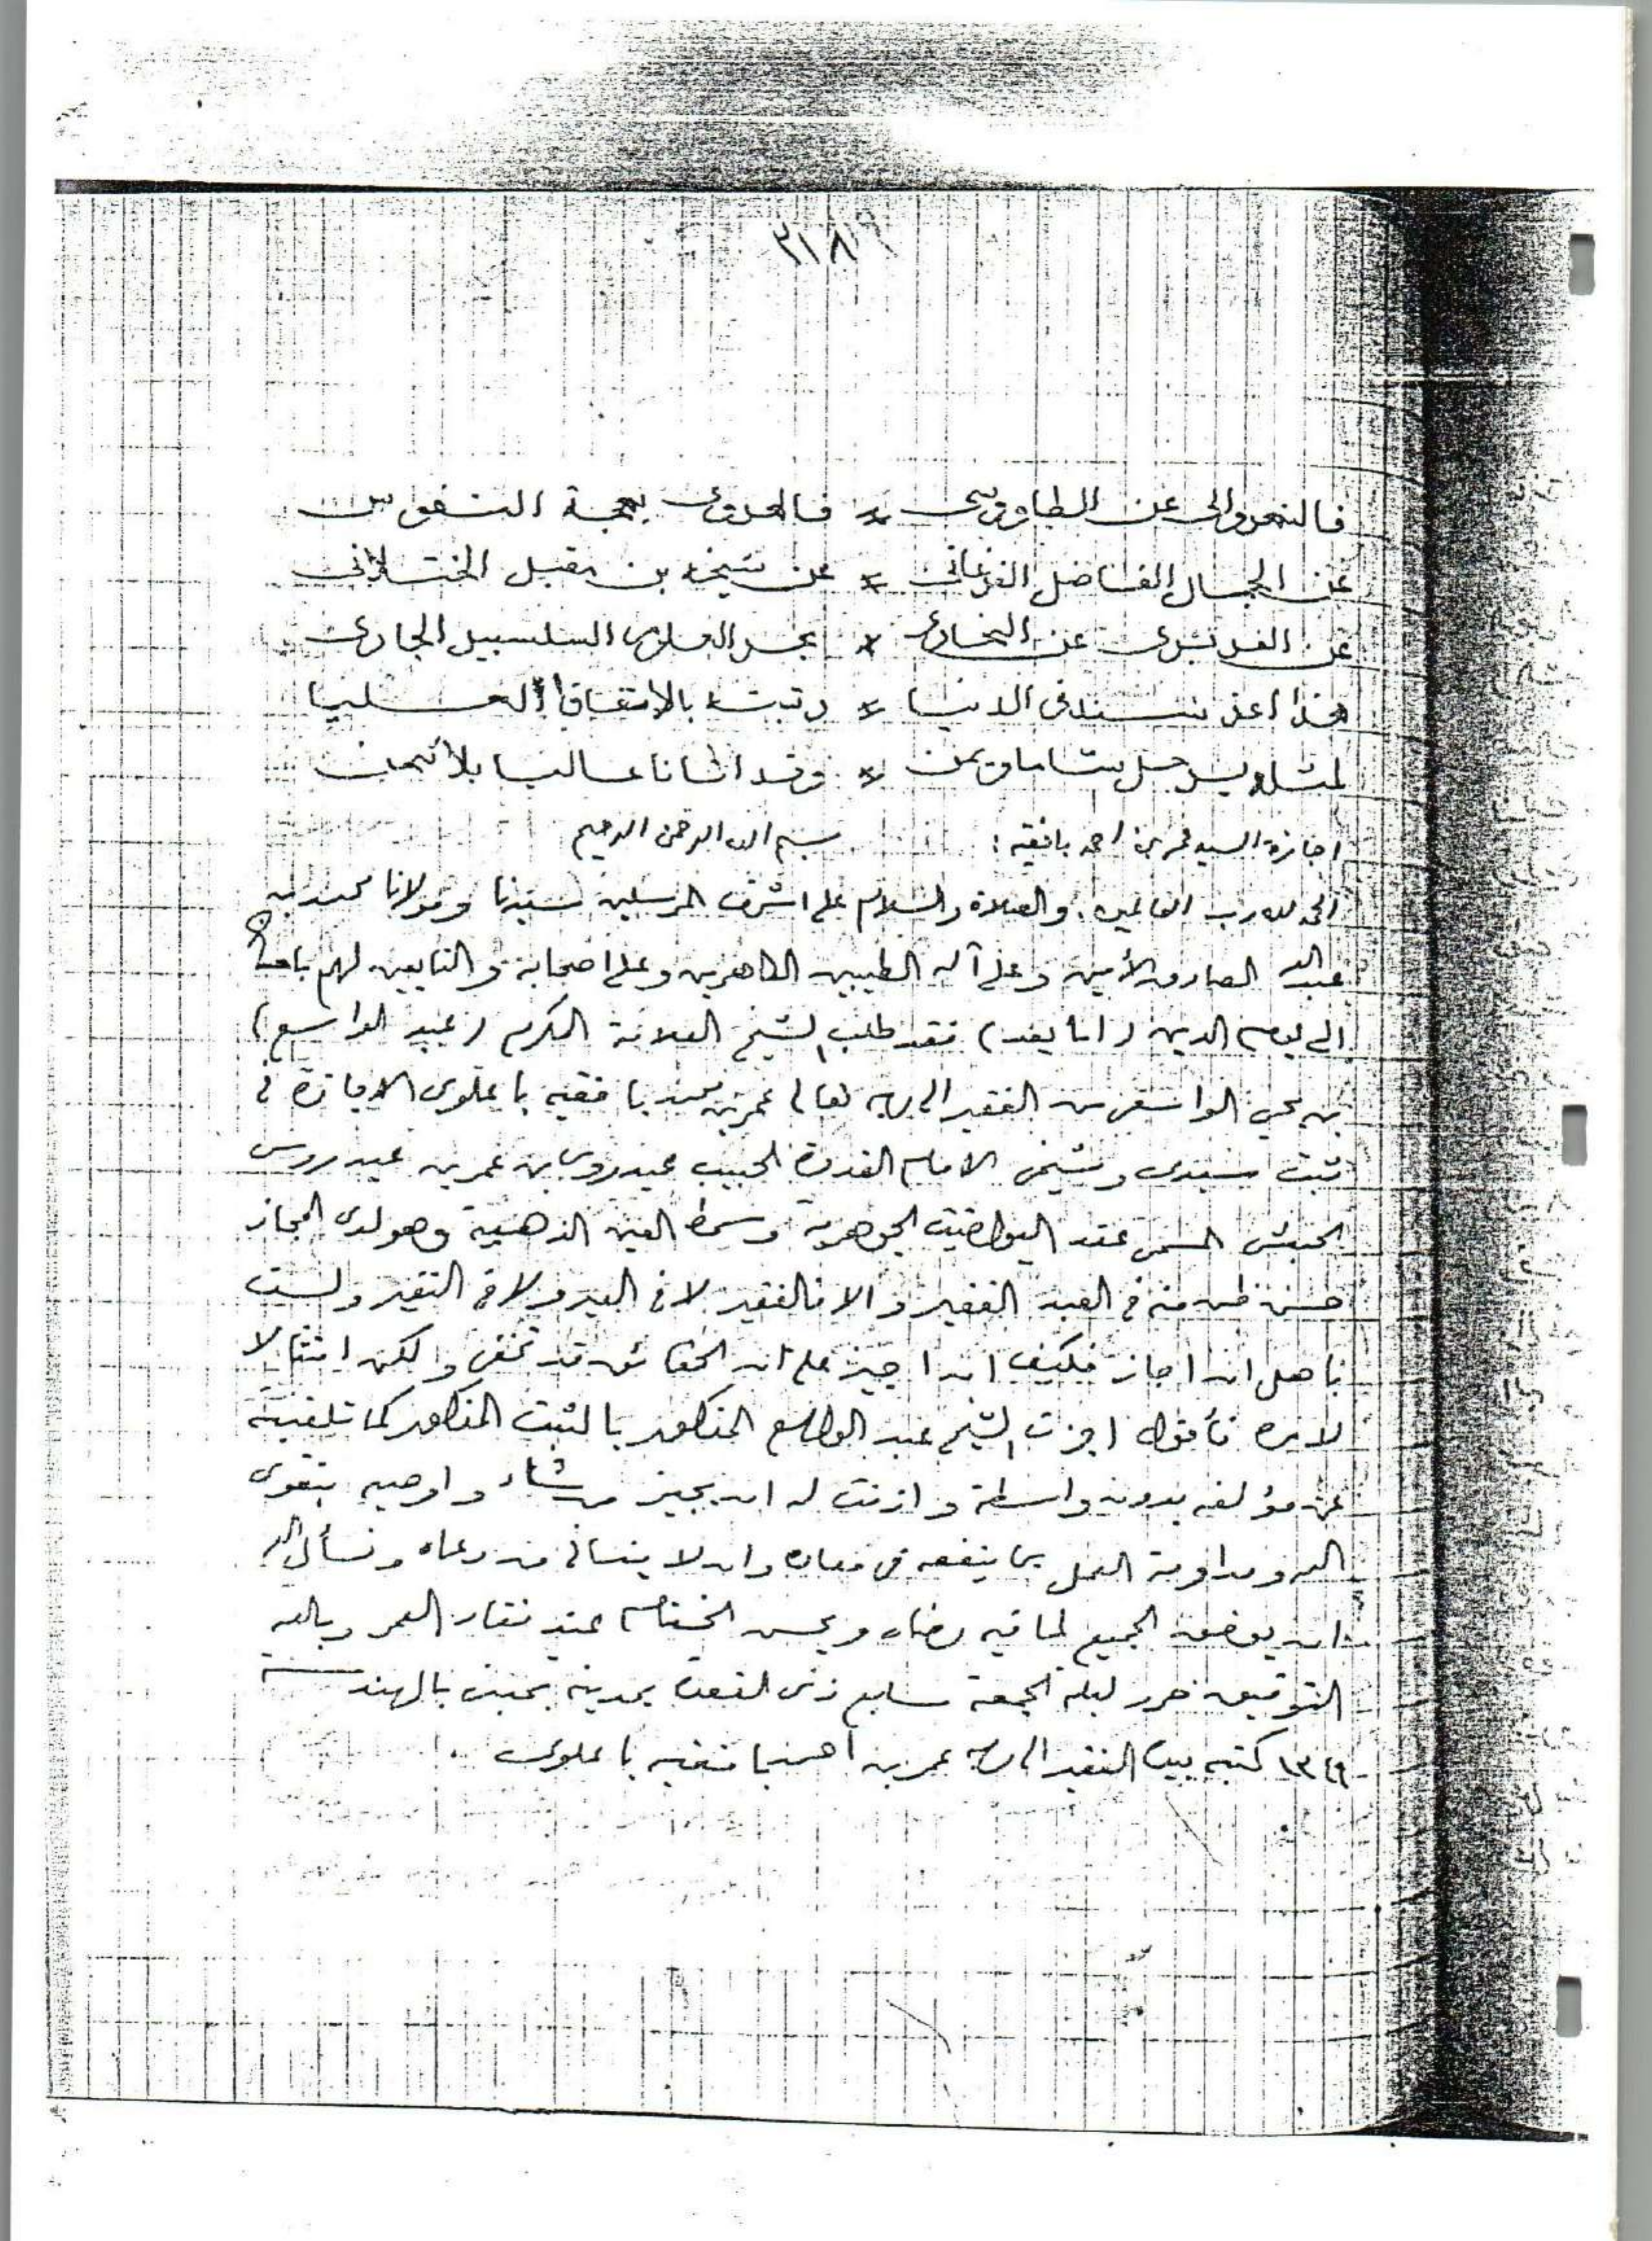 فالنهروالى عن الطاووسى * فالهروى بهجة النفوس
عن الجمال الفاضل الفرغانى * عن شيخه بن مقبل الختلانى
عن الفربرى عن البخارى * بحر العلوم السلسبيل الجارى
هذا اعز سند فى الدنيا * رتبته بالاتفاق العليا
لمثله يرحل شاما ويمن * وقد اتانا عاليا بلا ثمن
اجازة السيد عمر بن احمد بافقيه : بسم الله الرحمن الرحيم
الحمد لله رب العالمين والصلاة والسلام على اشرف المرسلين سيدنا ومولانا محمد بن
عبد الله الصادق الأمين وعلى آله الطيبين الطاهرين وعلى اصحابه والتابعين لهم
الى يوم الدين (اما بعد) فقد طلب الشيخ العلامة المكرم (عبد الواسع)
بن يحيى الواسعى من الفقير الى ربه تعالى عمر بن بافقيه باعلوى الاجازة فى
ثبت سيدى وشيخى الامام القدوة الحبيب عيدروس بن عمر بن عيدروس
الحبشى المسمى عقد اليواقيت الجوهرية وسمط العين الذهبية وهو لدى المجاز
حسن ظن منه فى العبد الفقير والا فالفقير لا فى العير ولا فى النفير ولست
باهل ان اجاز فكيف ان اجيز على ان الحقائق قد تخفى ولكن امتثالا
لامره فأقول اجزت الشيخ عبد الواسع المذكور بالثبت المذكور كما تلقيته
عن مؤلفه بدون واسطة واذنت له ان يجيز من شاء واوصيه بتقوى
الله ومداومة العمل بما ينفعه فى معاده وان لا ينسانى من دعاه ونسأل الله
ان يوفق الجميع لما فيه رضاه ويحسن الختام عند نفاد العمر وبالله
التوفيق حرر ليلة الجمعة سابع ذى القعدة بمدينة بمبئ بالهند سنة
١٣٤٩ كتبه بيده الفقير الى ربه عمر بن احمد بافقيه باعلوى .